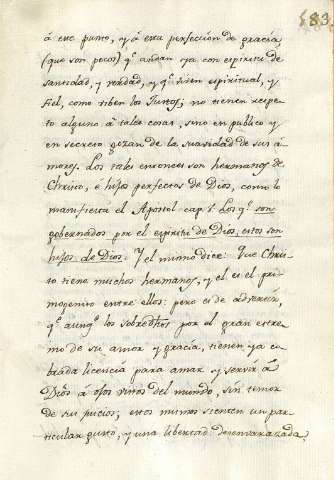 83
á ese punto, y á esa perfeccion de gracia
(que son pocos) q.e andan ya con espiritu de
santidad, y verdad, y q.e viven espiritual, y
fiel, como viben los Justos; no tienen respe-
to alguno á tales cosas, sino en publico y
en secreto gozan de la suavidad de sus á-
mores. Los tales entonces son hermanos de
Christo, é hijos perfectos de Dios, como lo
manifiesta el Apostol cap. Los q.e son
gobernados por el espiritu de Dios, estos son
hijos de Dios. Y el mismo dice: Que Chris-
to tiene muchos hermanos, y el es el pri-
mogenito entre ellos: pero es de advertir,
q.e aunq.e los sobredhos por el gran estre-
mo de su amor y gracia, tienen ya co-
brada licencia para amar y servir á
Dios á ojos vistos del mundo, sin temor
de su juicio; estos mismos sienten un par-
ticular gusto, y una libertad desembarazada,